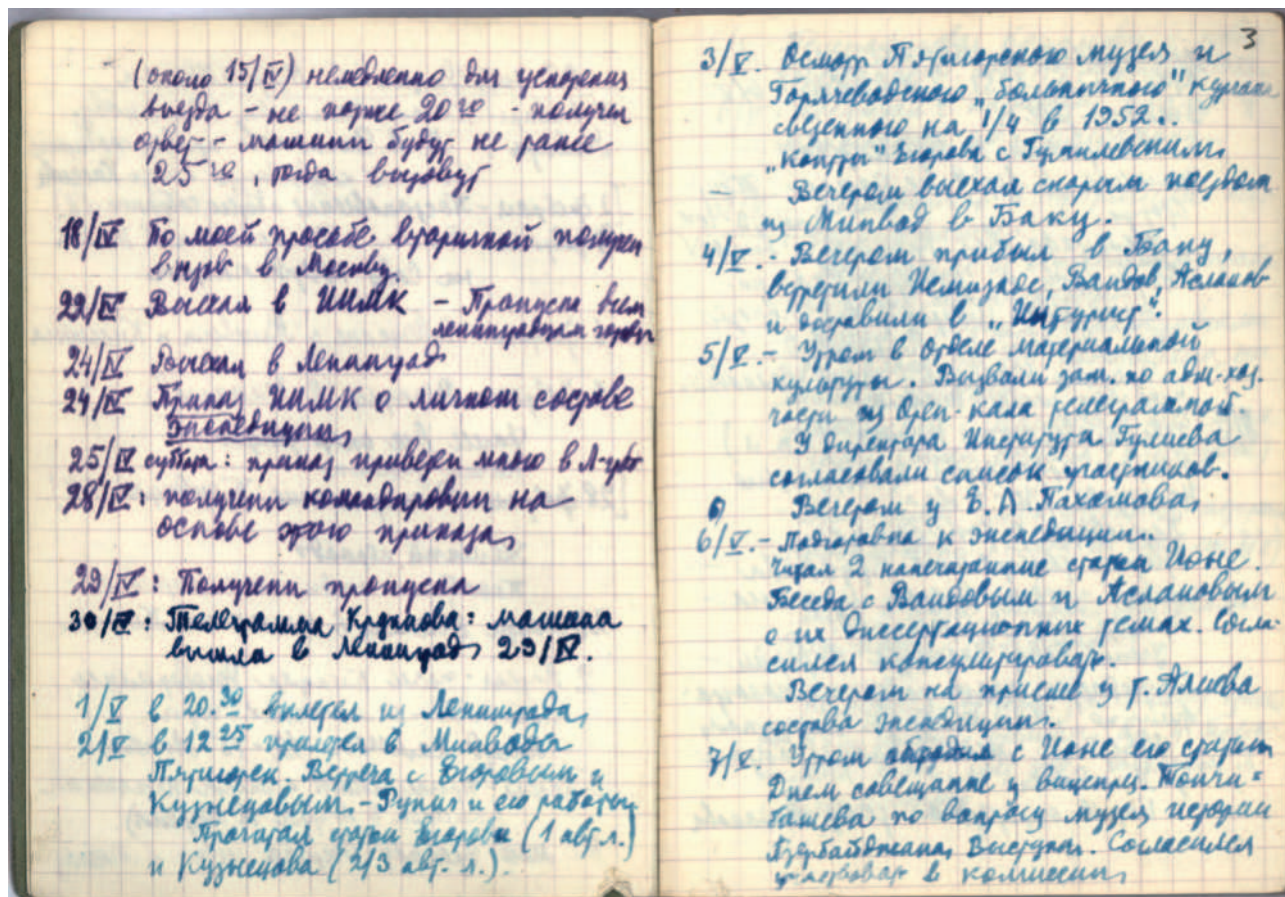 (около 15/IV) немедленно для ускорения
выезда - не позже 20го - получен
ответ - машины будут не ранее
25го, тогда вызовут
18/IV По моей просьбе вторичной получен
вызов в Москву.
22/IV Выехал в ИИМК - Пропуска всем
ленинградцам готовы
24/IV Выехал в Ленинград
24/IV Приказ ИИМК о личном составе
Экспедиции
25/IV суббота: приказ привезен мною в Л-град
28/IV: получены командировки на
основе этого приказа
29/IV: Получены пропуска
30/IV: Телеграмма : машина
вышла в Ленинград 29/IV.
1/V в 20.30 вылетел из Ленинграда
2/V в 12 25 прилетел в Минводы
Пятигорск. Встреча с Егоровым и
Кузнецовым. - Рунич и его работы
Прочитал статьи Егорова (1 авт. л.)
и Кузнецова (2/3 авт. л.).
3
3/V. Осмотр Пятигорского музея и
Горячеводского „больничного" кургана
свезенного на 1/4 в 1952..
„контры" Егорова с Гумилевским
- Вечером выехал скорым поездом
из Минвод в Баку.
4/V. - Вечером прибыл в Баку,
встретили , Ваидов, Асланов
и доставили в „Интурист".
5/V. - Утром в Отделе материальной
культуры. Вызвали зам. по адм-хоз.
части из Орен-кала телеграммой.
У директора Института Гулиева
согласовали список участников.
Вечером у Е. А. Пахомова
6/V. - Подготовка к экспедиции.
Читал 2 напечатанные статьи Ионе.
Беседа с Ваидовым и Аслановым
о их диссертационных темах. Согла-
сился консультировать.
Вечером на приеме у т. Алиева
состава экспедиции.
7/V. Утром с Ионе его статьи
Днем совещание у вицепрез. Топчи=
башева по вопросу музея истории
Азербайджана. Выступил. Согласился
участвовать в комиссии